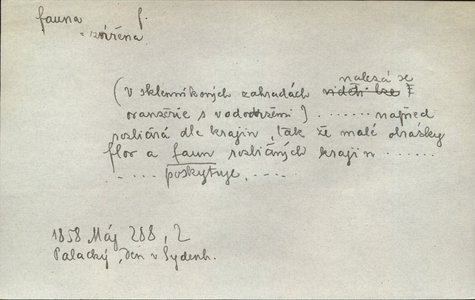 fauna f.
= zvířena
nalezá se
(v sklenníkových zahradách viděti lze
oranžerie s vodotrženi) ....... napřed
rozličná dle krajin, tak že malé obrázky
flor a faun rozličných krajin ......
..... poskytuje. .....
1858 Máj 288, 2
Palacký, Den v Sydenh.